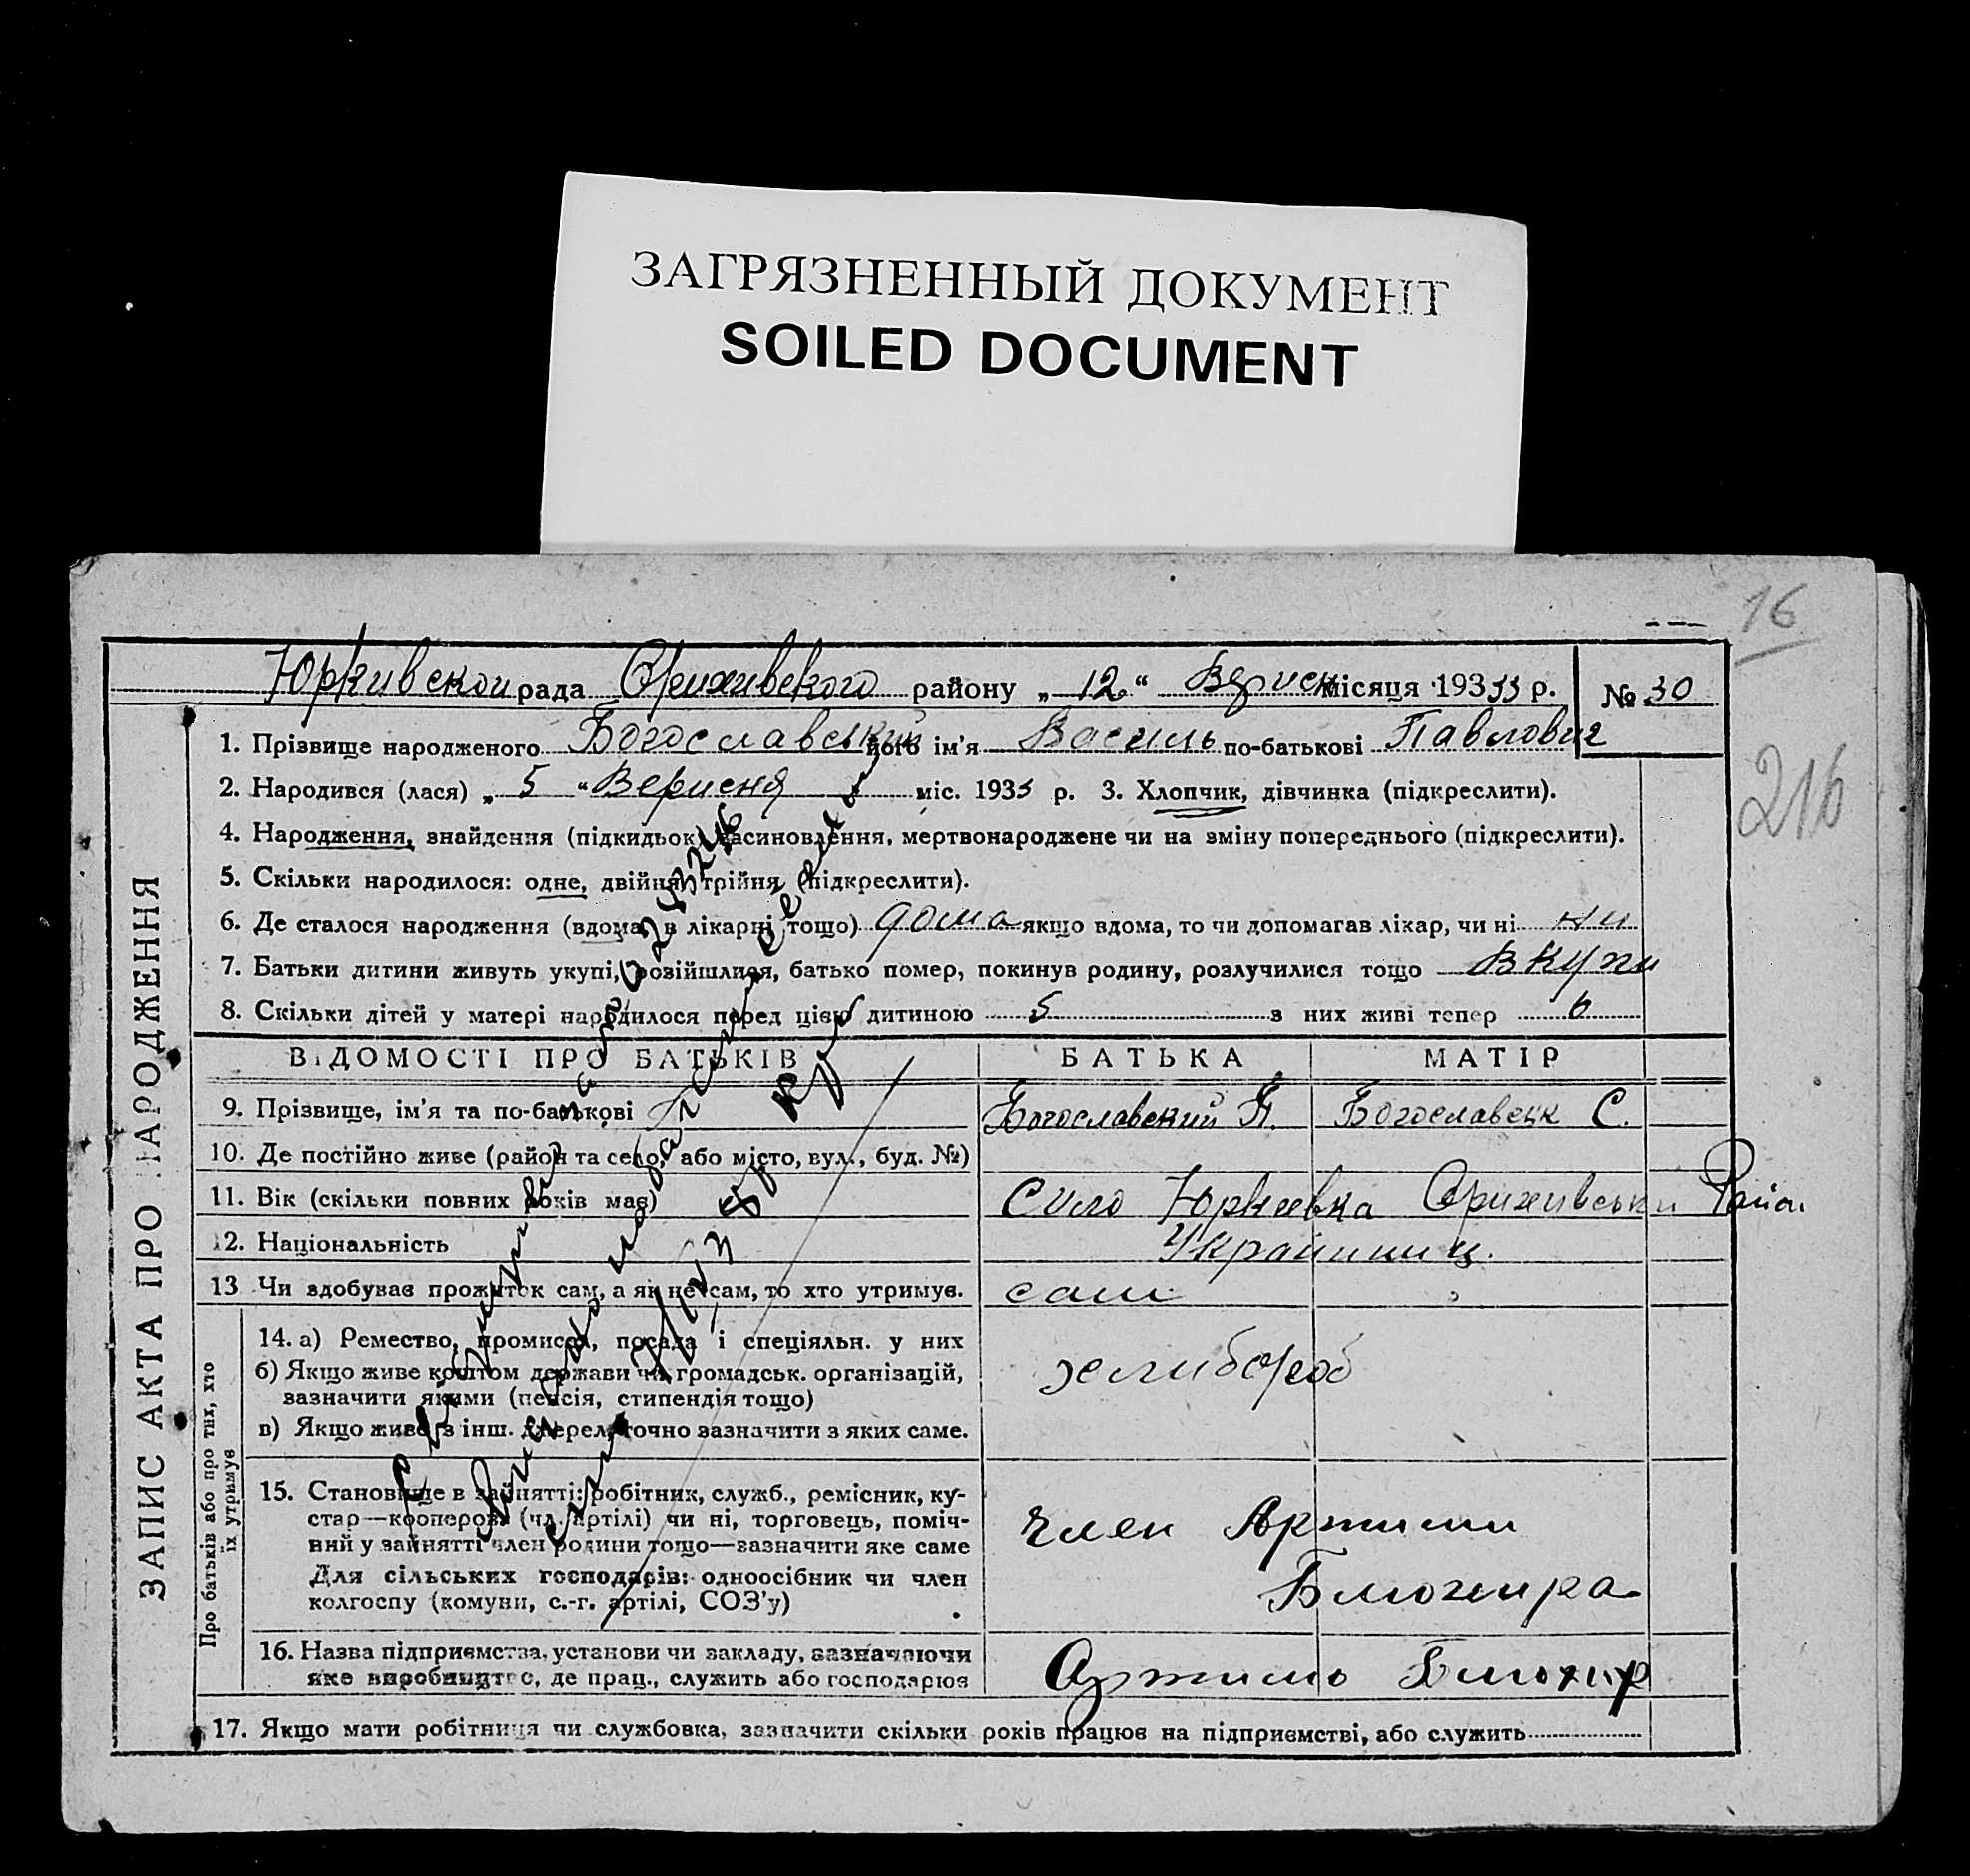 ЗАГРЯЗНЕННЫЙ ДОКУМЕНТ
SOILED DOCUMENT
16
Юркивскои рада Орихивского району „12“ Вэрисн місяця 1933 р. № 30
216
ЗАПИС АКТА ПРО НАРОДЖЕННЯ
1. Прізвище народженого Богославський його ім'я Василь по-батькові Павлович
2. Народився (лася) „5“ Верисня міс. 1933 р. 3. Хлопчик, дівчинка (підкреслити).
4. Народження, знайдення (підкидьок) засиновлення, мертвонароджене чи на зміну попереднього (підкреслити).
5. Скільки народилося: одне, двійня, трійня (підкреслити).
6. Де сталося народження (вдома, в лікарні тощо) дома якщо вдома, то чи допомагав лікар, чи ні ни
7. Батьки дитини живуть укупі, розійшлися, батько помер, покинув родину, розлучилися тощо Вкупи
8. Скільки дітей у матері народилося перед цією дитиною 5 з них живі тепер 6
ВІДОМОСТІ ПРО БАТЬКІВ БАТЬКА МАТІР
9. Прізвище, ім'я та по-батькові Богославский П. Богославецк С.
10. Де постійно живе (район та село, або місто, вул., буд. №)
11. Вік (скільки повних років має) Сило Юркивка Орихивськи Район
12. Національність Украинец.
13 Чи здобуває прожиток сам, а як не сам, то хто утримує. сам
Про батьків або про тих, хто їх утримує
14. а) Ремество, промисел, посада і спеціяльн. у них
б) Якщо живе коштом держави чи громадськ. організацій,
зазначити якими (пенсія, стипендія тощо) хлибороб
в) Якщо живе з інш. джерел, точно зазначити з яких саме.
15. Становище в зайнятті: робітник, служб., ремісник, ку-
стар—кооперов. (чл. артілі) чи ні, торговець, поміч- Член Артили
ний у зайнятті член родини тощо—зазначити яке саме
Для сільських господарів: одноосібник чи член
колгоспу (комуни, с.-г. артілі, СОЗ'у)
16. Назва підприємства, установи чи закладу, зазначаючи
яке виробництво, де прац., служить або господарює
17. Якщо мати робітниця чи службовка, зазначити скільки років працює на підприємстві, або служить